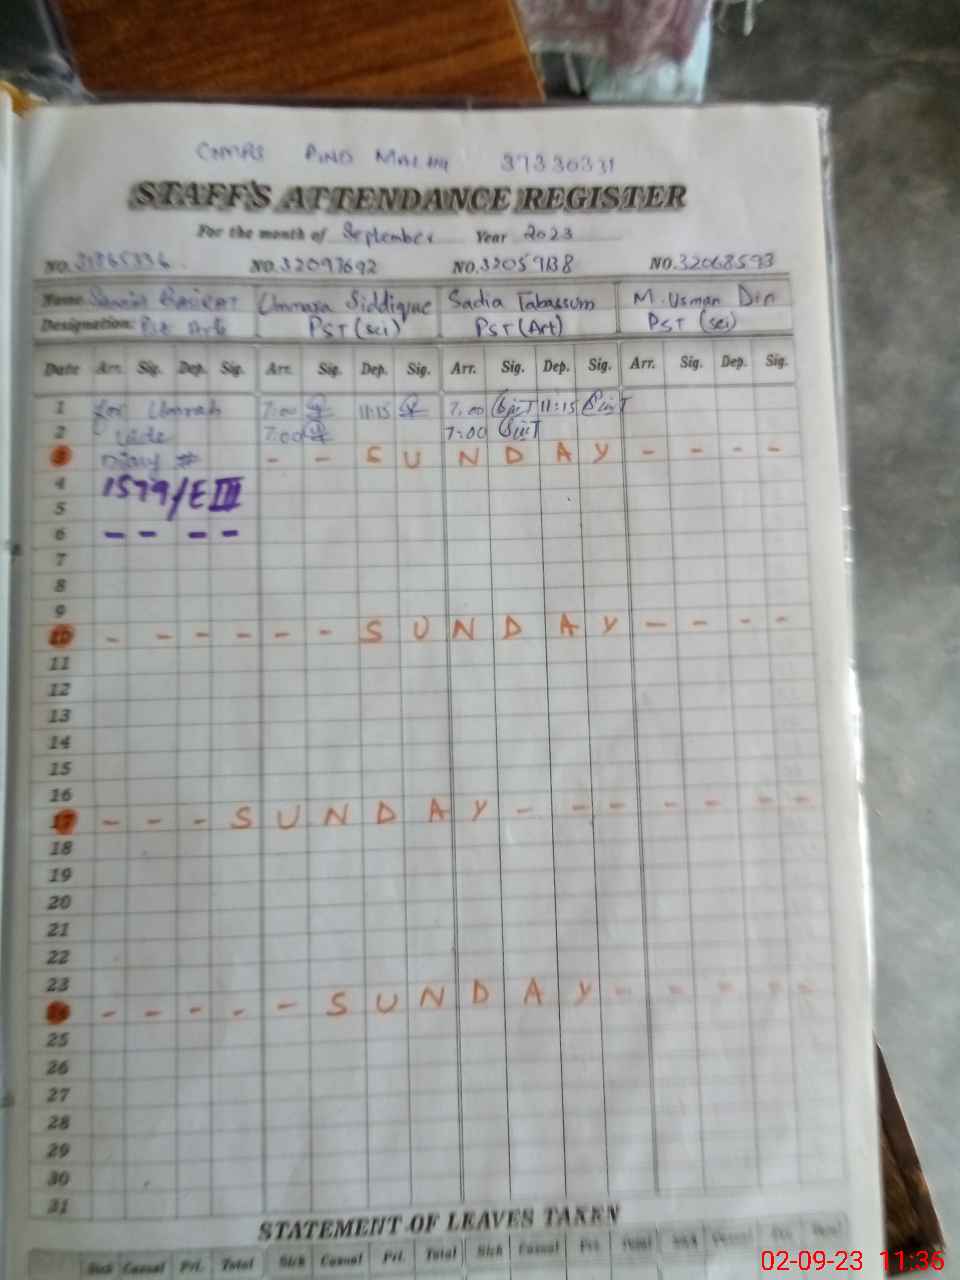 PIND 37330331
STAFF'S ATTENDANCE REGISTER
For the month of September Year 2023
NO. NO. 32097692 NO. 32059138 NO. 32068593
Name. BASIRAT Ummara Siddique Sadia Tabassum M. Usman Din
Designation: PST (sci) PST (Art) PST (sci)
Date Arr. Sig. Dep. Sig. Arr. Sig. Dep. Sig. Arr. Sig. Dep. Sig. Arr. Sig. Dep. Sig.
1 for Umrah 7:00 11:15 7:00 11:15
2 vide 7:00 7:00
3 Diary # - - S U N D A Y - - - -
4 1579/E III
5
6 - - - -
7
8
9
10 - - - - - - S U N D A Y - - - -
11
12
13
14
15
16
17 - - - S U N D A Y - - - - - - -
18
19
20
21
22
23
24 - - - - - S U N D A Y - - - - -
25
26
27
28
29
30
31
STATEMENT OF LEAVES TAKEN
Sick Casual Pri. Total Sick Casual Pri. Total Sick Casual Pri. Total Sick Casual Pri. Total
02-09-23 11:36